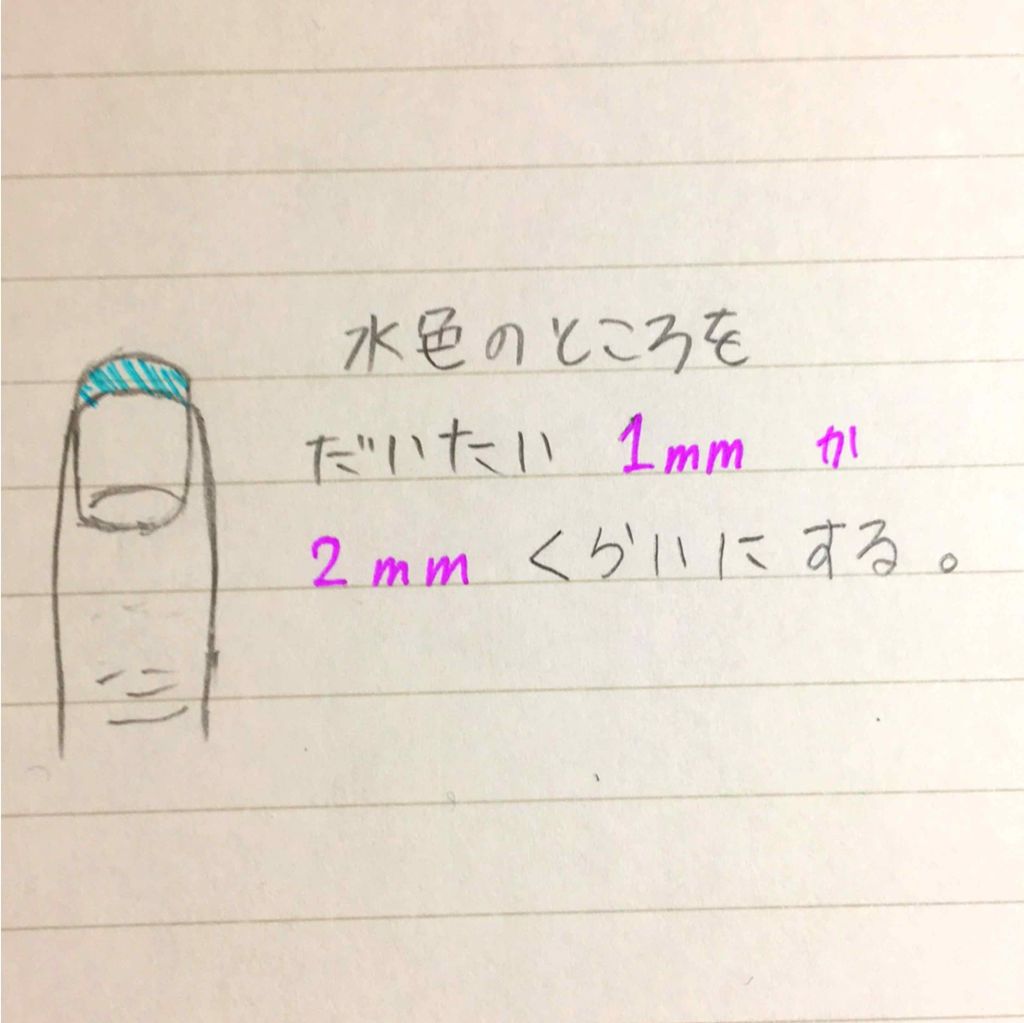 水色のところを
だいたい 1mm か
2mm くらいにする。